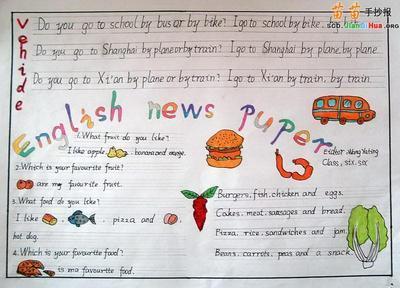 苗苗手抄报
scb.JianBiHua.org
Vehide
Do you go to school by bus or by bike? I go to school by bike.
Do you go to Shanghai by plane or by train? I go to Shanghai by plane. plane
Do you go to Xi'an by plane or by train? I go to Xi'an by train. train
English news puper
1. What fruit do you like?
I like apple, banana and orange.
2. Which is your favourite fruit?
are my favourite fruit.
3. What food do you like?
I like , , pizza and ,
hot dog.
4. Which is your favourite food?
is ma favourite food.
Editor
Class, six. six
Burgers, fish, chicken and eggs.
Cakes, meat, sausages and bread.
Pizza, rice, sandwiches and jam.
Beans, carrots, peas and a snack.